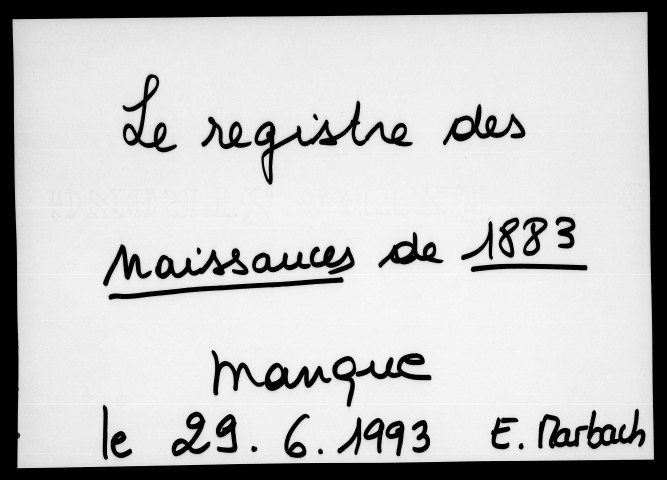 Le registre des
naissances de 1883
manque
le 29.6.1993 E. Marbach